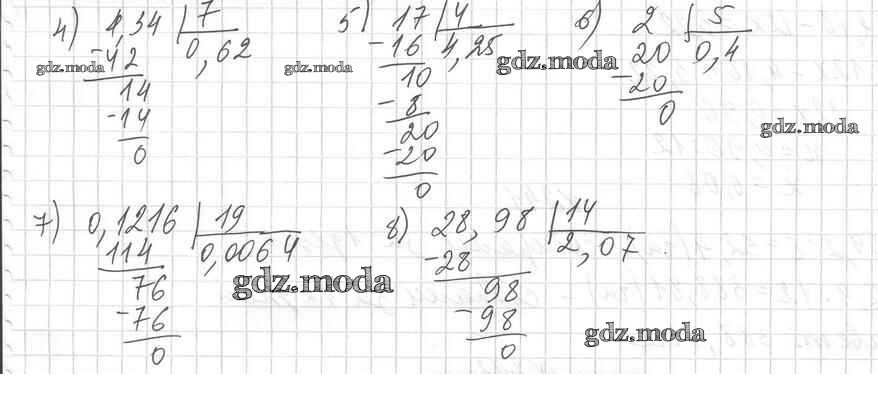 4) 4,34 7
-42 0,62
14
-14
0
5) 17 4
-16 4,25
10
-8
20
-20
0
6) 2 5
20 0,4
-20
0
gdz.moda
gdz.moda
gdz.moda
gdz.moda
7) 0,1216 19
114 0,0064
76
-76
0
8) 28,98 14
-28 2,07
98
-98
0
gdz.moda
gdz.moda